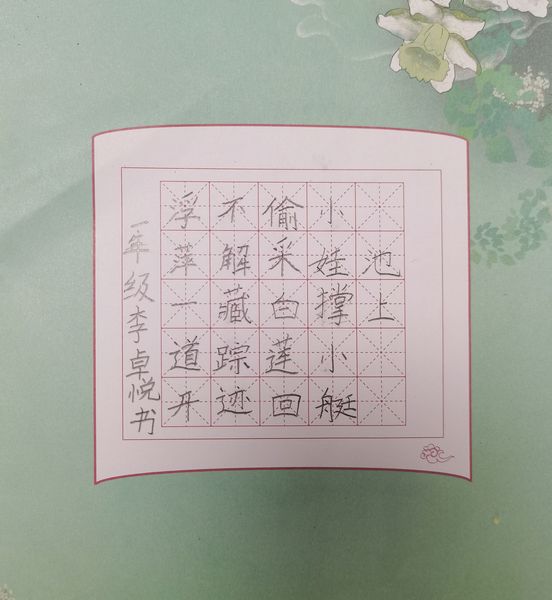 池上
小娃撑小艇
偷采白莲回
不解藏踪迹
浮萍一道开
一年级李卓悦书